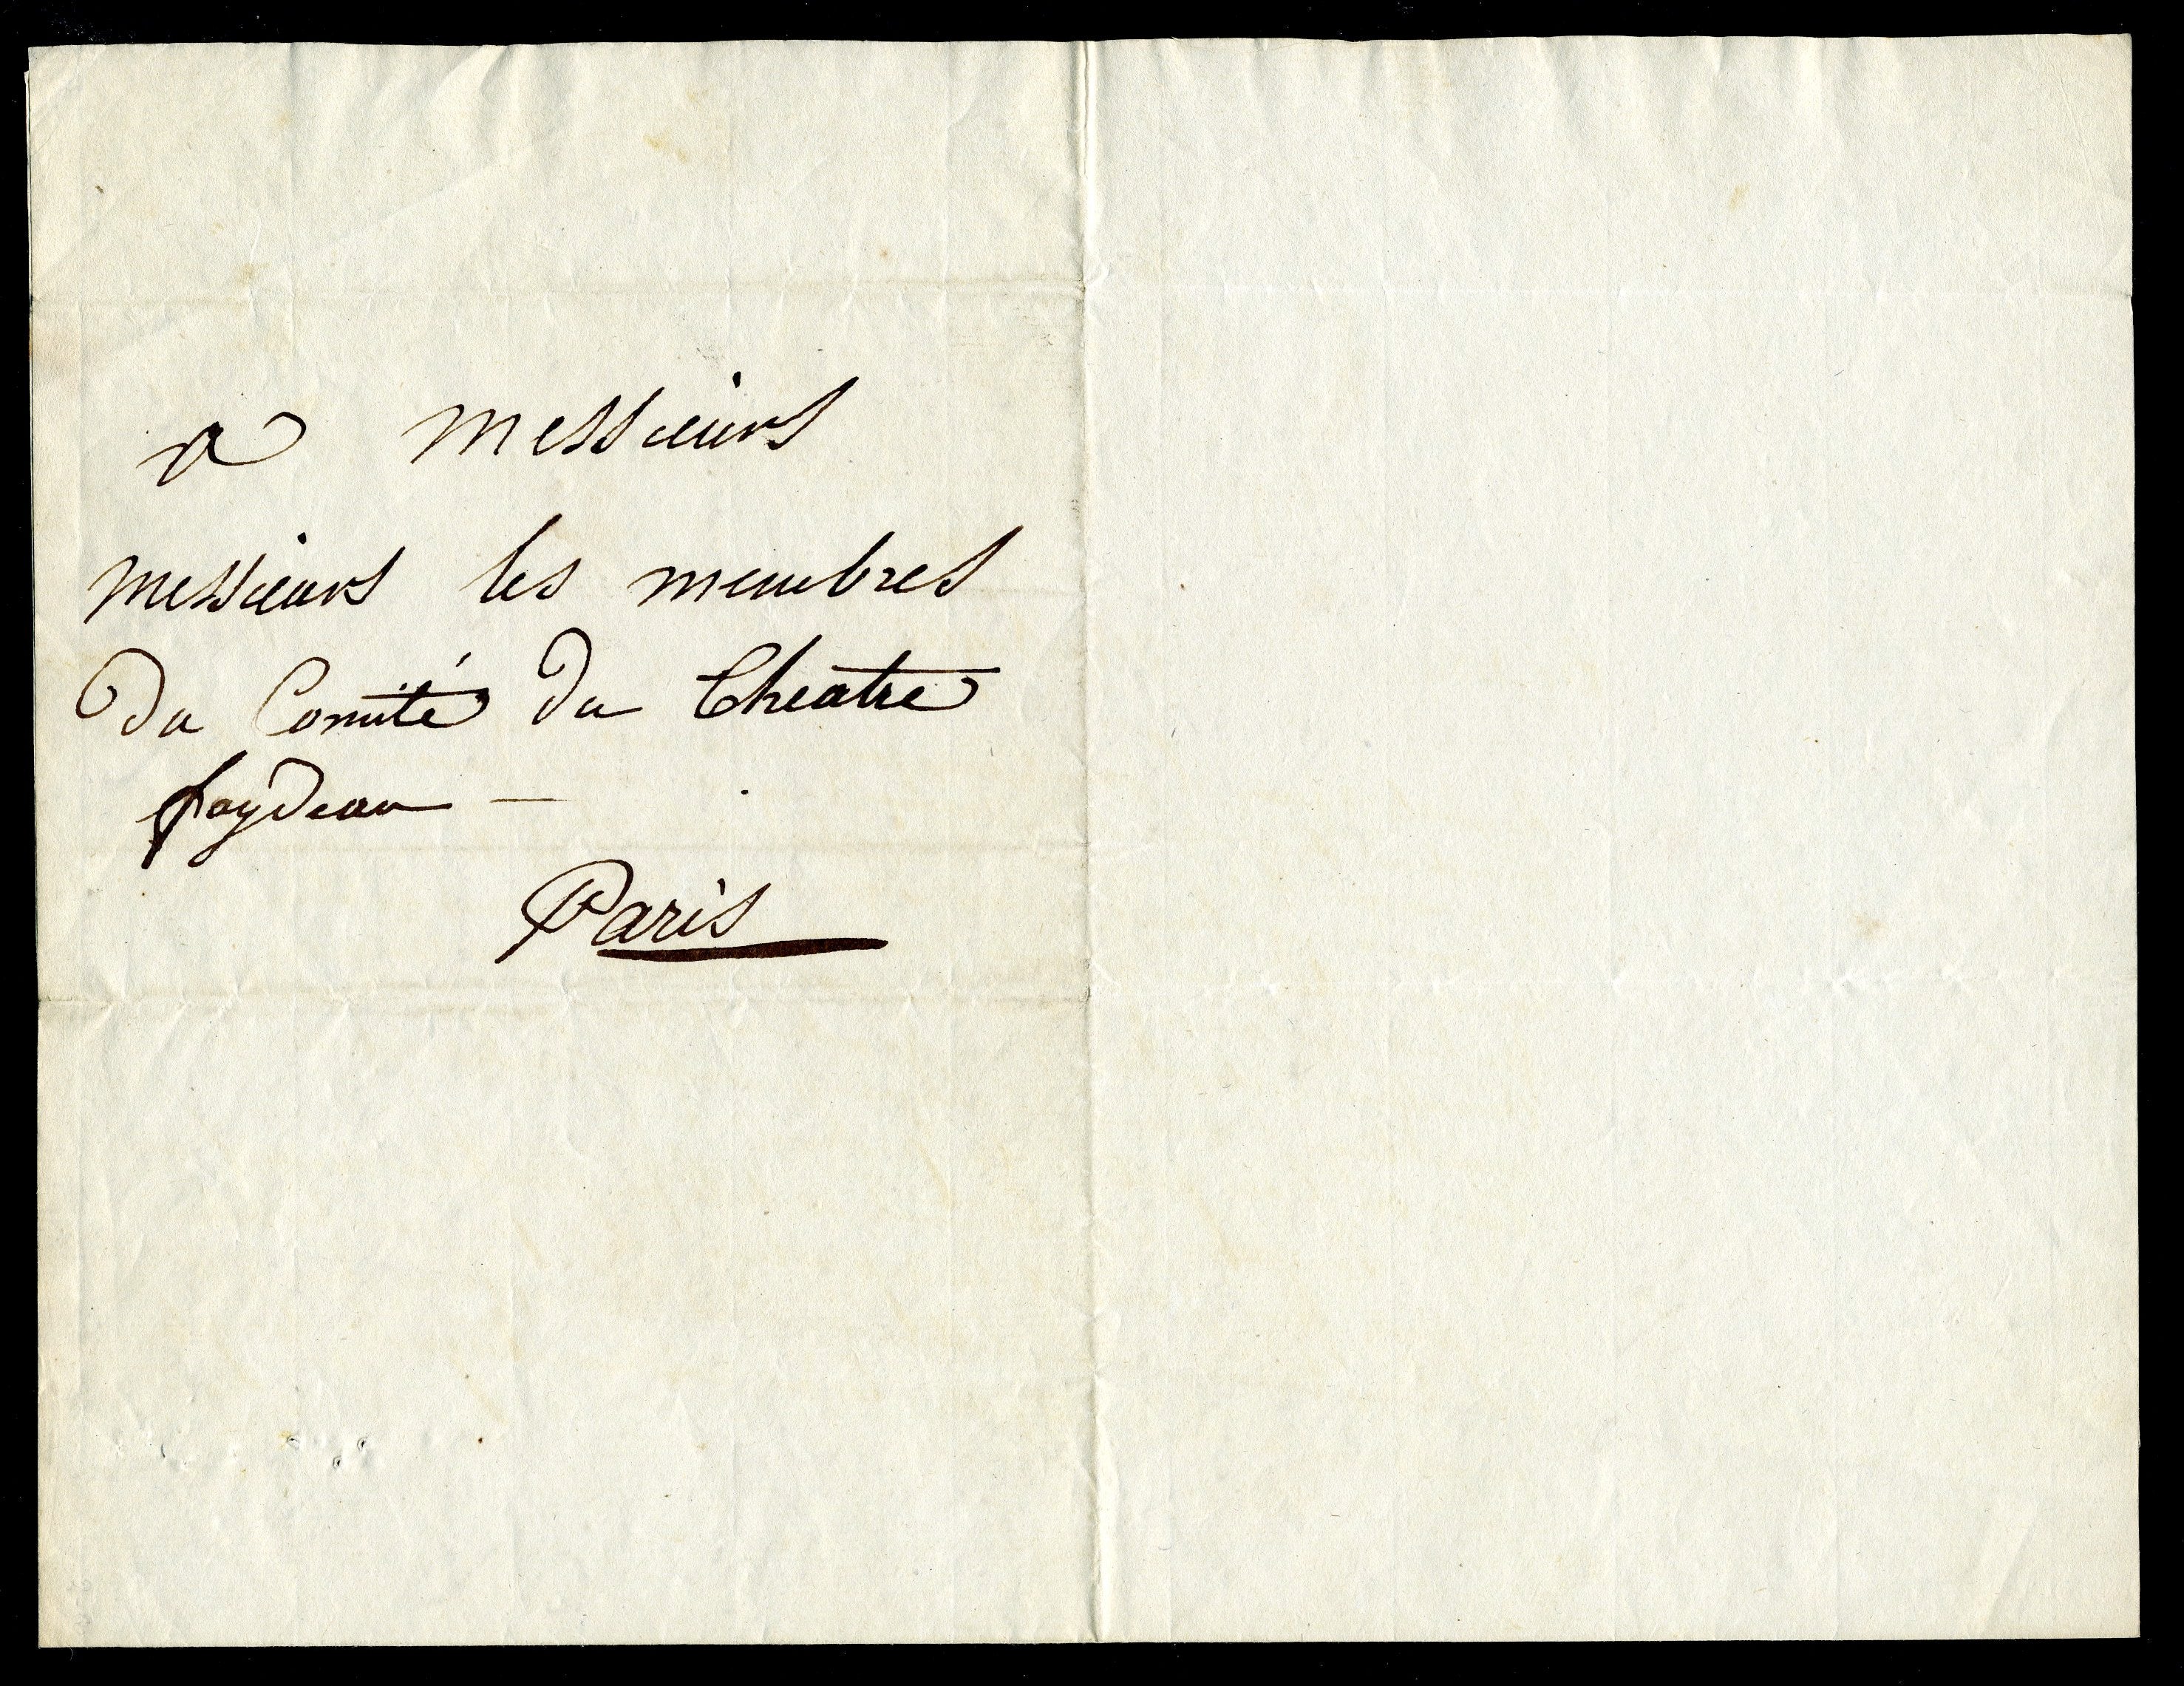 a messieurs
messieurs les membres
du Comité du Theatre
faydeau —
Paris